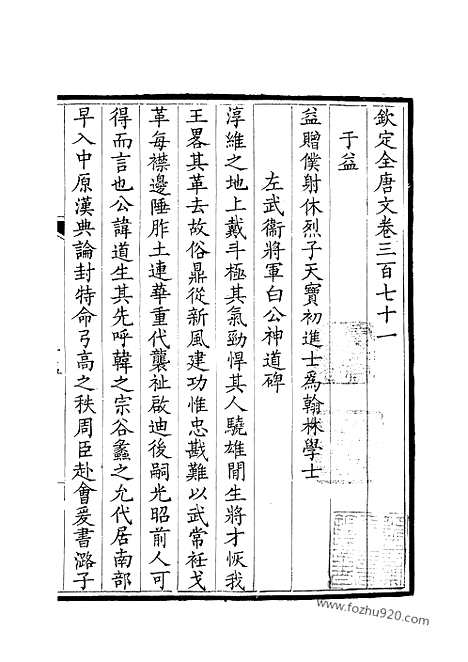 欽定全唐文卷三百七十一
于益
益贈僕射休烈子天寶初進士爲翰林學士
左武衞將軍白公神道碑
淳維之地上戴斗極其氣勁悍其人驍雄閒生將才恢我
王畧其革去故俗鼎從新風建功惟忠戡難以武常衽戈
革每襟邊陲胙土連華重代襲祉啟迪後嗣光昭前人可
得而言也公諱道生其先呼韓之宗谷蠡之允代居南部
早入中原漢典論封特命弓高之秩周臣赴會爰書潞子
www.fozhu920.com